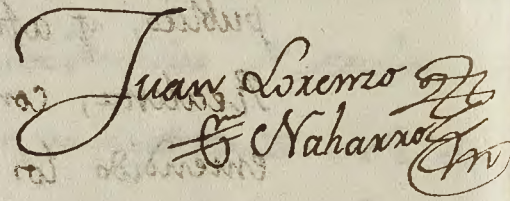 Juan Lorenzo
Naharro